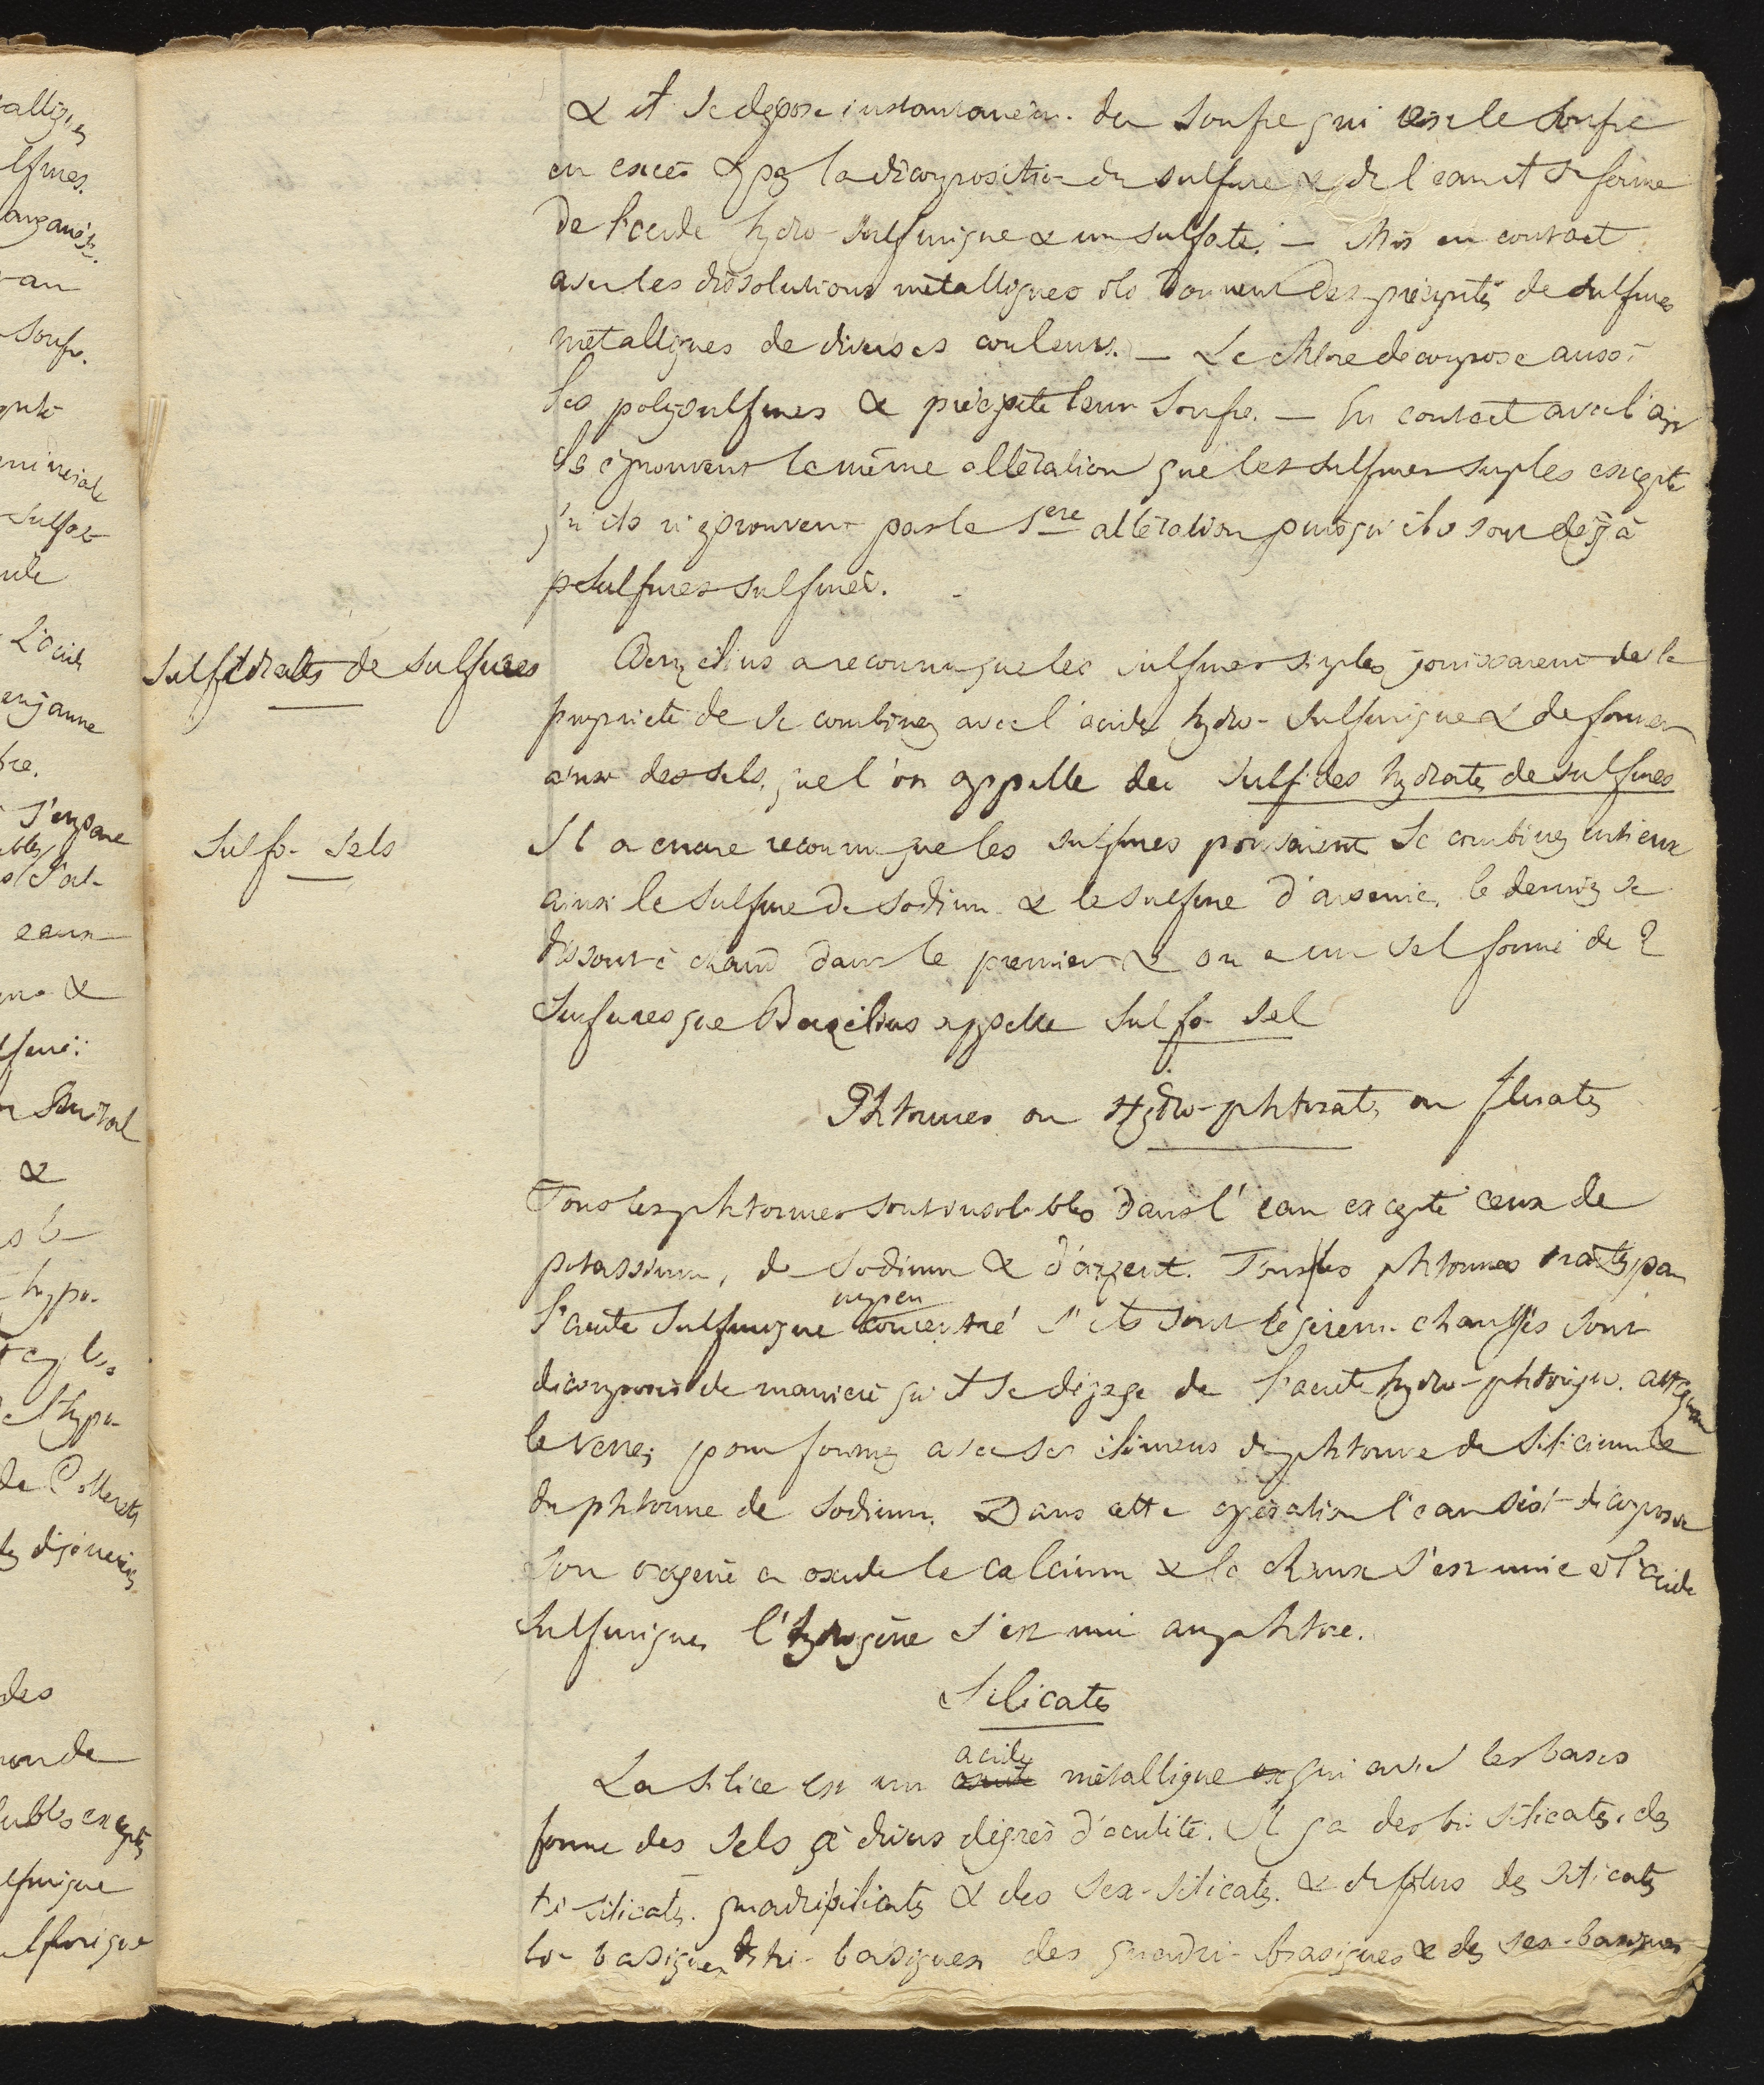 & il se dépose instantaném. du soufre qui est le soufre
en excès & par la décomposition du sulfure & de l'eau il se forme
de l'acide hydro-sulfurique & un sulfate. — Mis en contact
avec les dissolutions métalliques ils donnent des précipités de sulfures
métalliques de diverses couleurs. — Le chlore décompose aussi
les polysulfures & précipite leur soufre. — En contact avec l'air
ils éprouvent la même altération que les sulfures simples excepté
qu'ils n'éprouvent pas la 1ere altération puisqu'ils sont déjà
sulfures sulfurés.
Sulfidrates de sulfures
Berzélius a reconnu que les sulfures simples jouissaient de la
propriété de se combiner avec l'acide hydro-sulfurique & de former
ainsi des sels, que l'on appelle des sulfides hydratés de sulfures
Sulfo-sels
Il a encore reconnu que les sulfures pouvaient se combiner entr'eux
ainsi le sulfure de sodium & le sulfure d'arsenic, le dernier se
dissout à chaud dans le premier & on a un sel formé de 2
sulfures que Berzélius appelle Sulfo-sel
Phtorures ou Hydro-phtorates ou fluates
Tous les phtorures sont insolubles dans l'eau excepté ceux de
potassium, de sodium & d'argent. Tous les phtorures traités par
un peu
l'acide sulfurique concentré s'ils sont légèrem. chauffés sont
décomposés de manière qu'il se dégage de l'acide hydro-phtorique. attaquant
le verre, pour former avec ses élémens du phtorure de silicium &
du phtorure de sodium. Dans cette opération l'eau s'est décomposée
son oxigène a oxidé le calcium & la chaux s'est unie à l'acide
sulfurique, l'hydrogène s'est uni au phtore.
Silicates
acide
La silice est un oxide métallique qui avec les bases
forme des sels à divers dégrés d'acidité. Il y a des bi-silicates, des
tri-silicates. quadrisilicates & des sex-silicates. & de plus des silicates
bi-basiques des tri-basiques des quadri-basiques & des sex-basiques